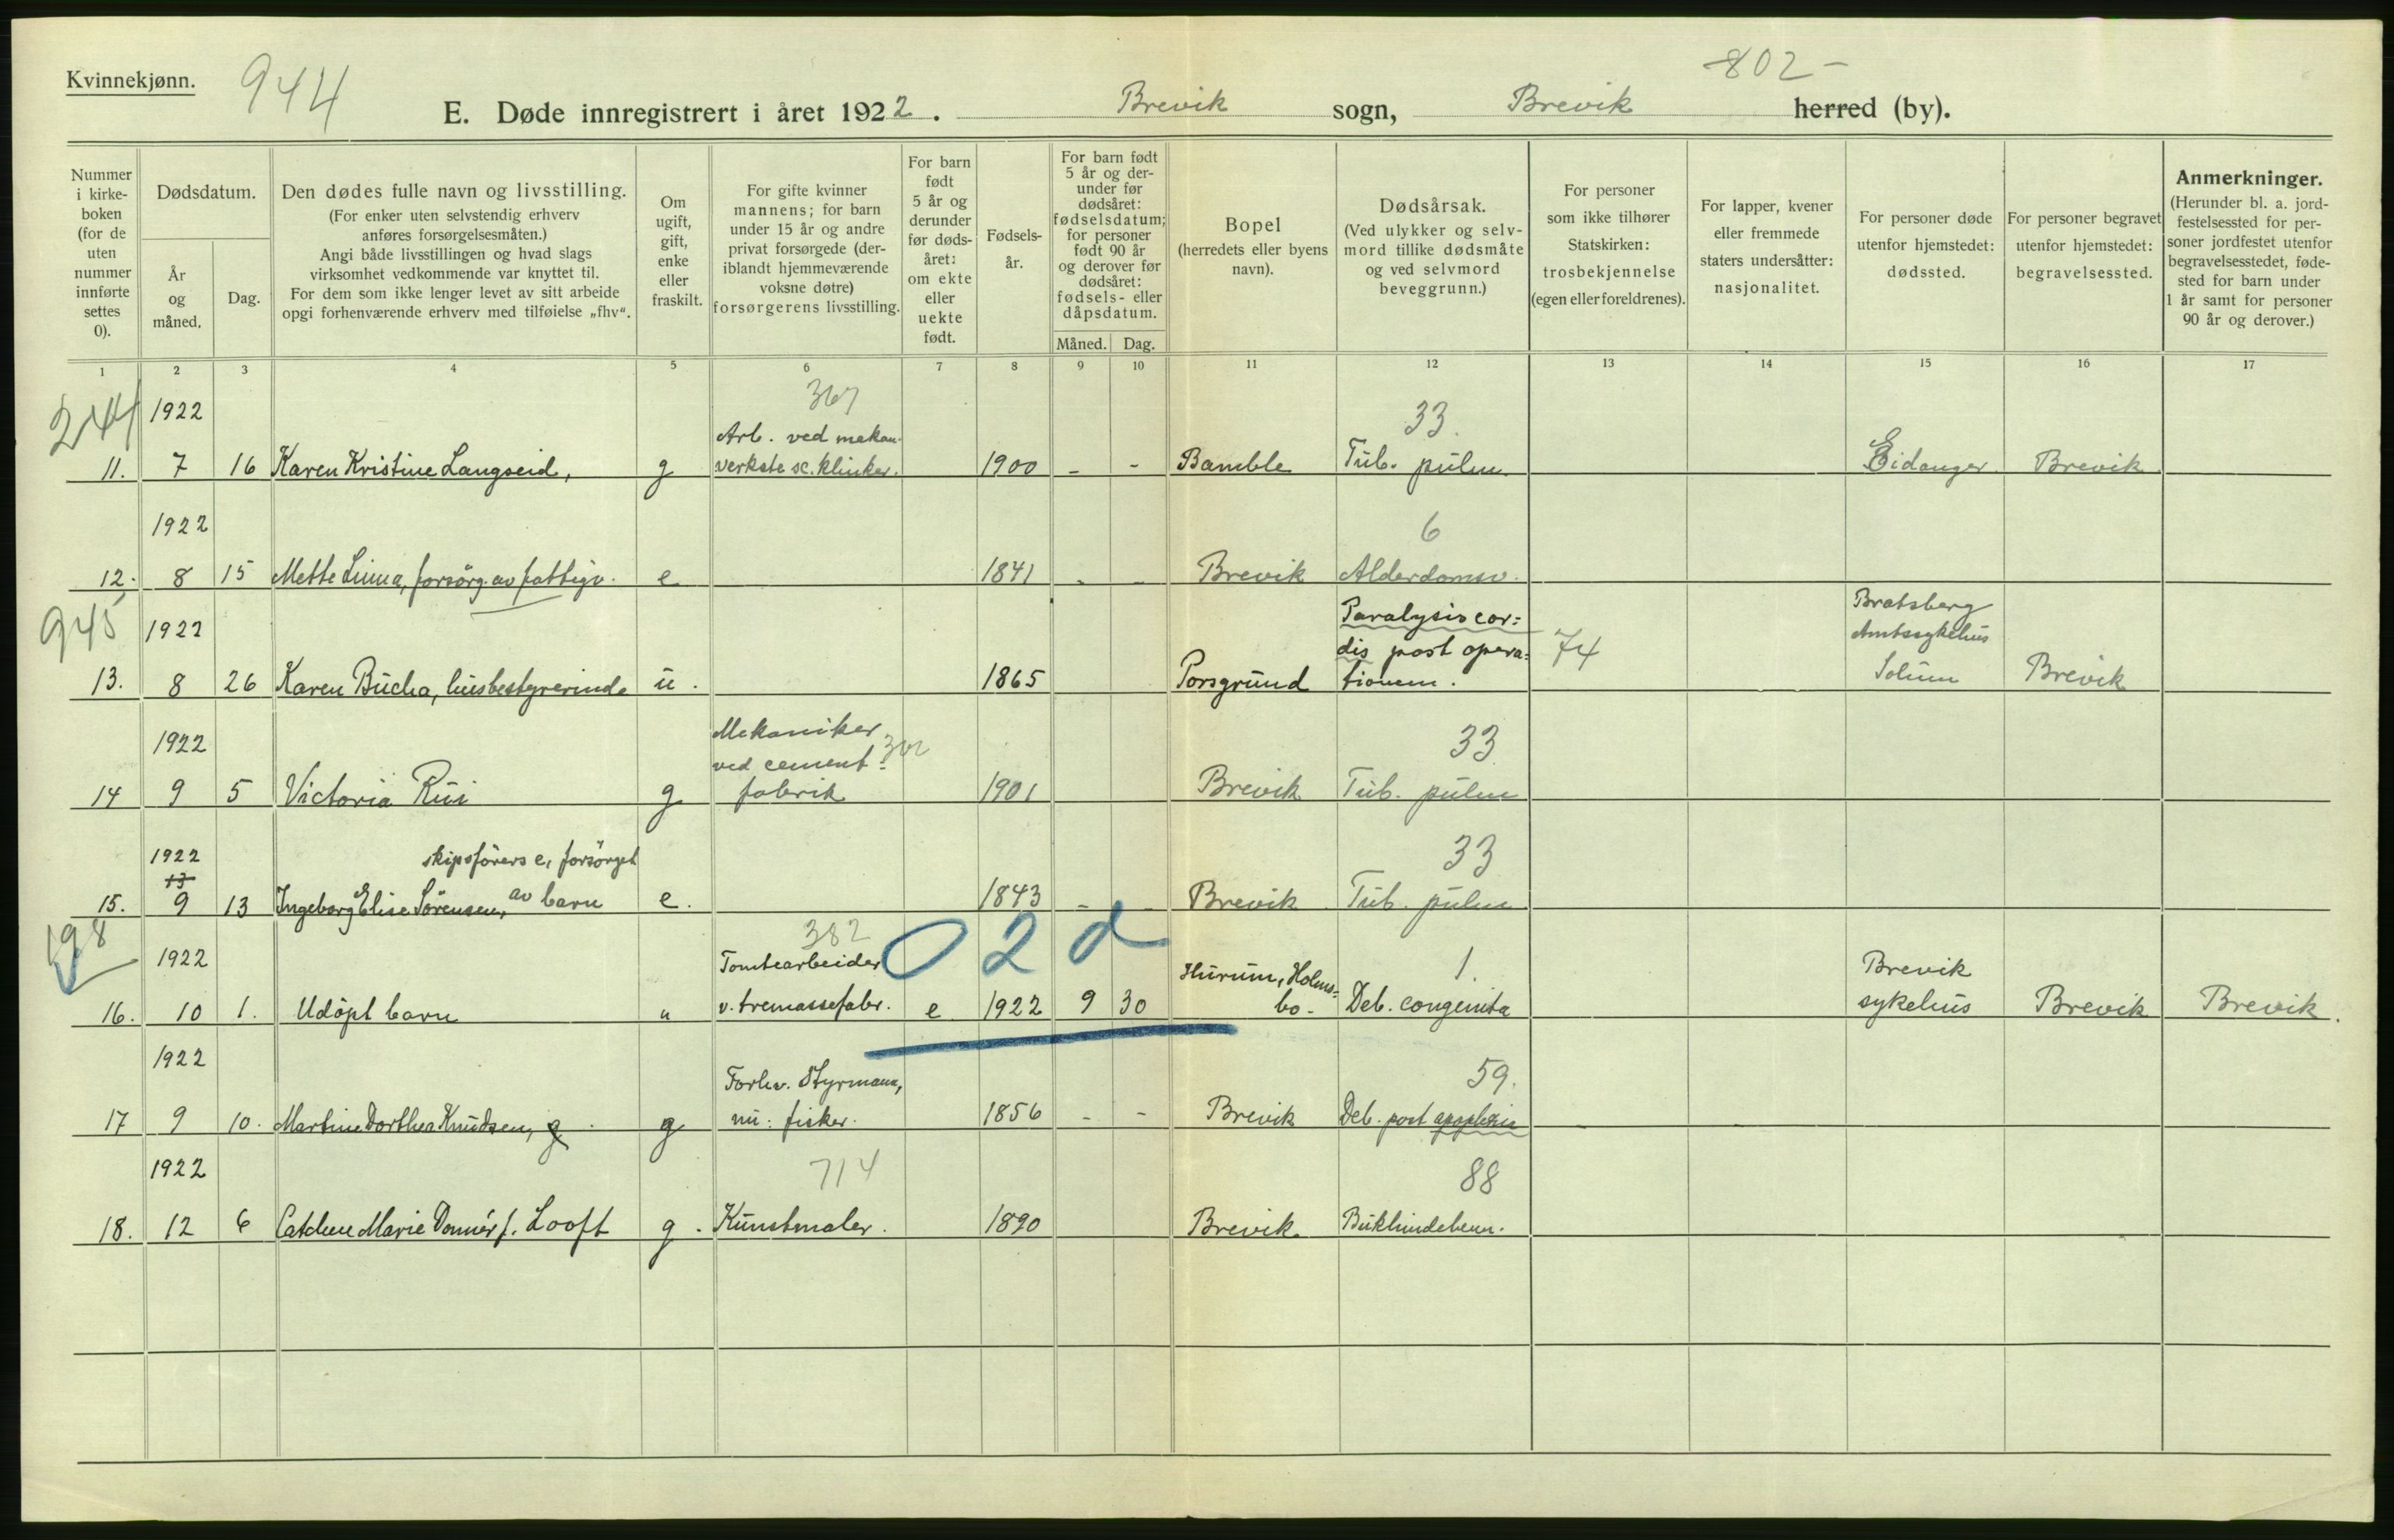 Kvinnekjønn.
944
802-
E. Døde innregistrert i året 1922. Brevik sogn, Brevik herred (by).
Nummer i kirke-boken (for de uten nummer innførte settes 0).
Dødsdatum.
År og måned.
Dag.
Den dødes fulle navn og livsstilling.
(For enker uten selvstendig erhverv
anføres forsørgelsesmåten.)
Angi både livsstillingen og hvad slags
virksomhet vedkommende var knyttet til.
For dem som ikke lenger levet av sitt arbeide
opgi forhenværende erhverv med tilføielse „fhv“.
Om ugift, gift, enke eller fraskilt.
For gifte kvinner
mannens; for barn
under 15 år og andre
privat forsørgede (der-
iblandt hjemmeværende
voksne døtre)
forsørgerens livsstilling.
For barn født 5 år og derunder før døds-året: om ekte eller uekte født.
Fødsels-år.
For barn født
5 år og der-
under før
dødsåret:
fødselsdatum;
for personer
født 90 år
og derover før
dødsåret:
fødsels- eller
dåpsdatum.
Måned.
Dag.
Bopel
(herredets eller byens
navn).
Dødsårsak.
(Ved ulykker og selv-
mord tillike dødsmåte
og ved selvmord
beveggrunn.)
For personer
som ikke tilhører
Statskirken:
trosbekjennelse
(egen eller foreldrenes).
For lapper, kvener
eller fremmede
staters undersåtter:
nasjonalitet.
For personer døde
utenfor hjemstedet:
dødssted.
For personer begravet
utenfor hjemstedet:
begravelsessted.
Anmerkninger.
(Herunder bl. a. jord-
festelsessted for per-
soner jordfestet utenfor
begravelsesstedet, føde-
sted for barn under
1 år samt for personer
90 år og derover.)
1 2 3 4 5 6 7 8 9 10 11 12 13 14 15 16 17
241 1922 367 33.
Arb. ved mekan.
11. 7 16 Karen Kristine Langseid, g verkste sc. klinker. 1900 - - Bamble Tub. pulm. Eidanger Brevik
1922 6
12. 8 15 Mette Linna, forsörg. av fattigv. e 1841 - - Brevik Alderdomsv.
945 1922 Paralysis cor= Bratsberg
dis post opera= 74 Amtssykehus
13. 8 26 Karen Bucha, husbestyrerinde u. 1865 Porsgrund tionem. Solum Brevik
1922 Mekaniker 33
ved cement=
14 9 5 Victoria Rui g fabrik 1901 Brevik Tub. pulm
1922 skipsförers e, forsörget 33
13
15. 9 13 Ingeborg Elise Sörensen, av barn e. 1843 - - Brevik Tub. pulm
198 1922 382 0 2 d
Tomtearbeider Hurum, Holms= 1. Brevik
16. 10 1. Udöpt barn u v. tremassefabr. e 1922 9 30 bo. Deb. congenita sykehus Brevik Brevik.
1922 Forhv. Styrmann, 59.
17 9 10. Martine Dorthea Knudsen, g g nu: fisker. 1856 - - Brevik Deb. post apoplexia
1922 714 88
18. 12 6 Marie Donnér f. Looft g. Kunstmaler. 1890 Brevik. Bukhindebetn.